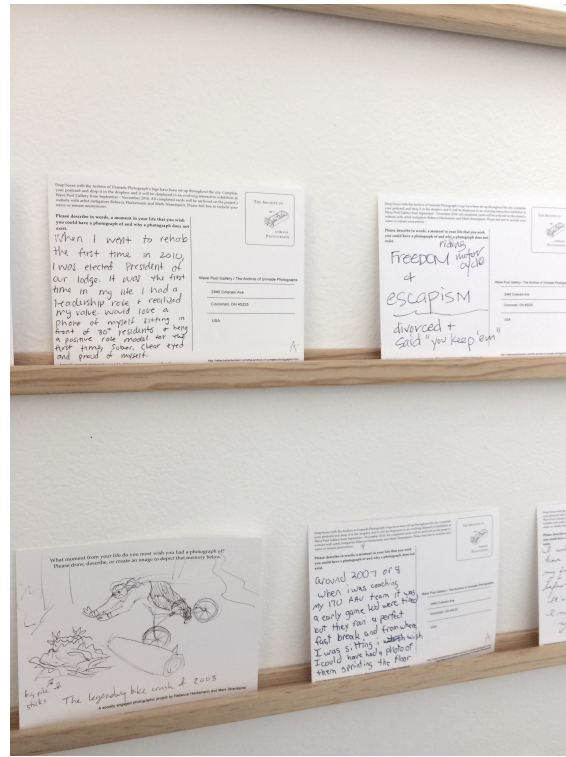 Drop boxes with the Archive of Unmade Photographs logo have been set up throughout the city. Complete
your postcard and drop it in the dropbox and it will be displayed in an evolving interactive exhibition at
Wave Pool Gallery from September - November 2018. All completed cards will be archived on the project's
website with artist instigators Rebecca Hackemann and Mark Strandquist. Please feel free to include your
name or remain anonymous.
Please describe in words, a moment in your life that you wish
you could have a photograph of and why a photograph does not
exist.
"When I went to rehab
the first time in 2010,
I was elected President of
our lodge. It was the first
time in my life I had a
leadership role & realized
my value. Would love a
photo of myself sitting in
front of 30+ residents & being
a positive role model for the
first time, sober, clear eyed
and proud of myself.
THE ARCHIVE OF
UNMADE
PHOTOGRAPHS
Wave Pool Gallery / The Archive of Unmade Photographs
2940 Colerain Ave
Cincinnati, OH 45225
USA
A
Please describe in words, a moment in your life that you wish
you could have a photograph of and why a photograph does not
exist.
riding
FREEDOM motor
cycle
&
escapism
divorced +
said "you keep 'em"
THE ARCHIVE OF
UNMADE
PHOTOGRAPHS
Wave Pool Gallery / The Archive of Unmade Photographs
2940 Colerain Ave
Cincinnati, OH 45225
USA
What moment from your life do you most wish you had a photograph of?
Please draw, describe, or create an image to depict that memory below.
big pile of
sticks
The legendary bike crash of 2003
A socially engaged photographic project by Rebecca Hackemann and Mark Strandquist
Please describe in words, a moment in your life that you wish
you could have a photograph of and why a photograph does not
exist.
around 2007 or 8
when i was coaching
my 17U AAU team it was
a early game kid were tired
but they ran a perfect
fast break and from where
I was sitting i wish
I could have had a photo of
them sprinting the floor
THE ARCHIVE OF
UNMADE
PHOTOGRAPHS
Wave Pool Gallery / The Archive of Unmade Photographs
2940 Colerain Ave
Cincinnati, OH 45225
USA
A